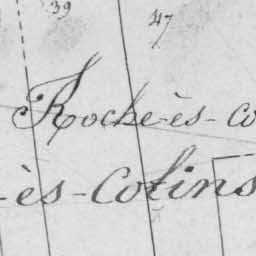 39
47
Roche-ès-co
-ès-Cotins